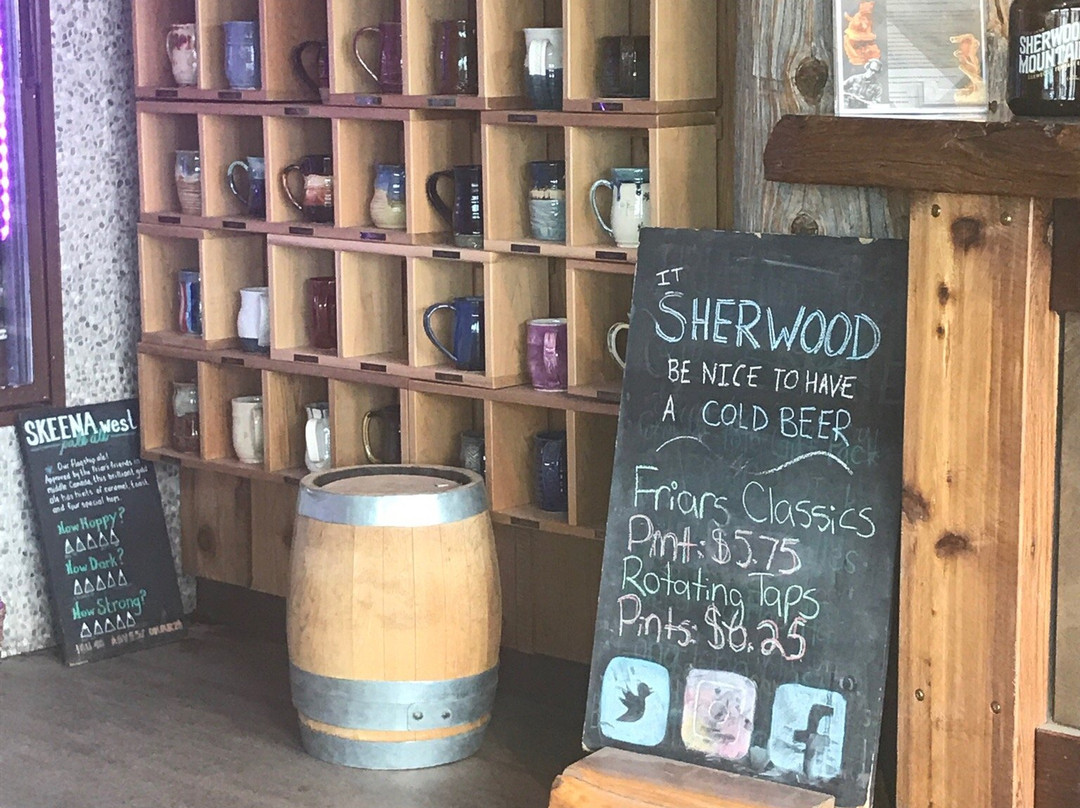 SHERWOOD
MOUNTAIN
SKEENA west
pale ale
Our flagship ale!
Approved by the Friar's friends in
Middle Canada, this brilliant gold
ale has hints of caramel, toast
and four special hops.
How Hoppy?
How Dark?
How Strong?
IT
SHERWOOD
BE NICE TO HAVE
A COLD BEER
Friars Classics
Pint: $5.75
Rotating Taps
Pints: $6.25
f